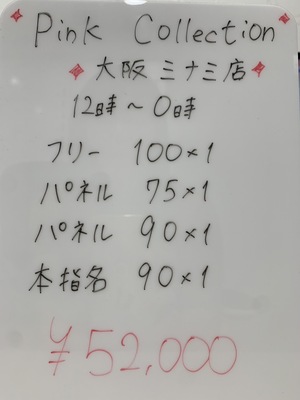 Pink Collection
大阪ミナミ店
12時～0時
フリー 100×1
パネル 75×1
パネル 90×1
本指名 90×1
¥52,000